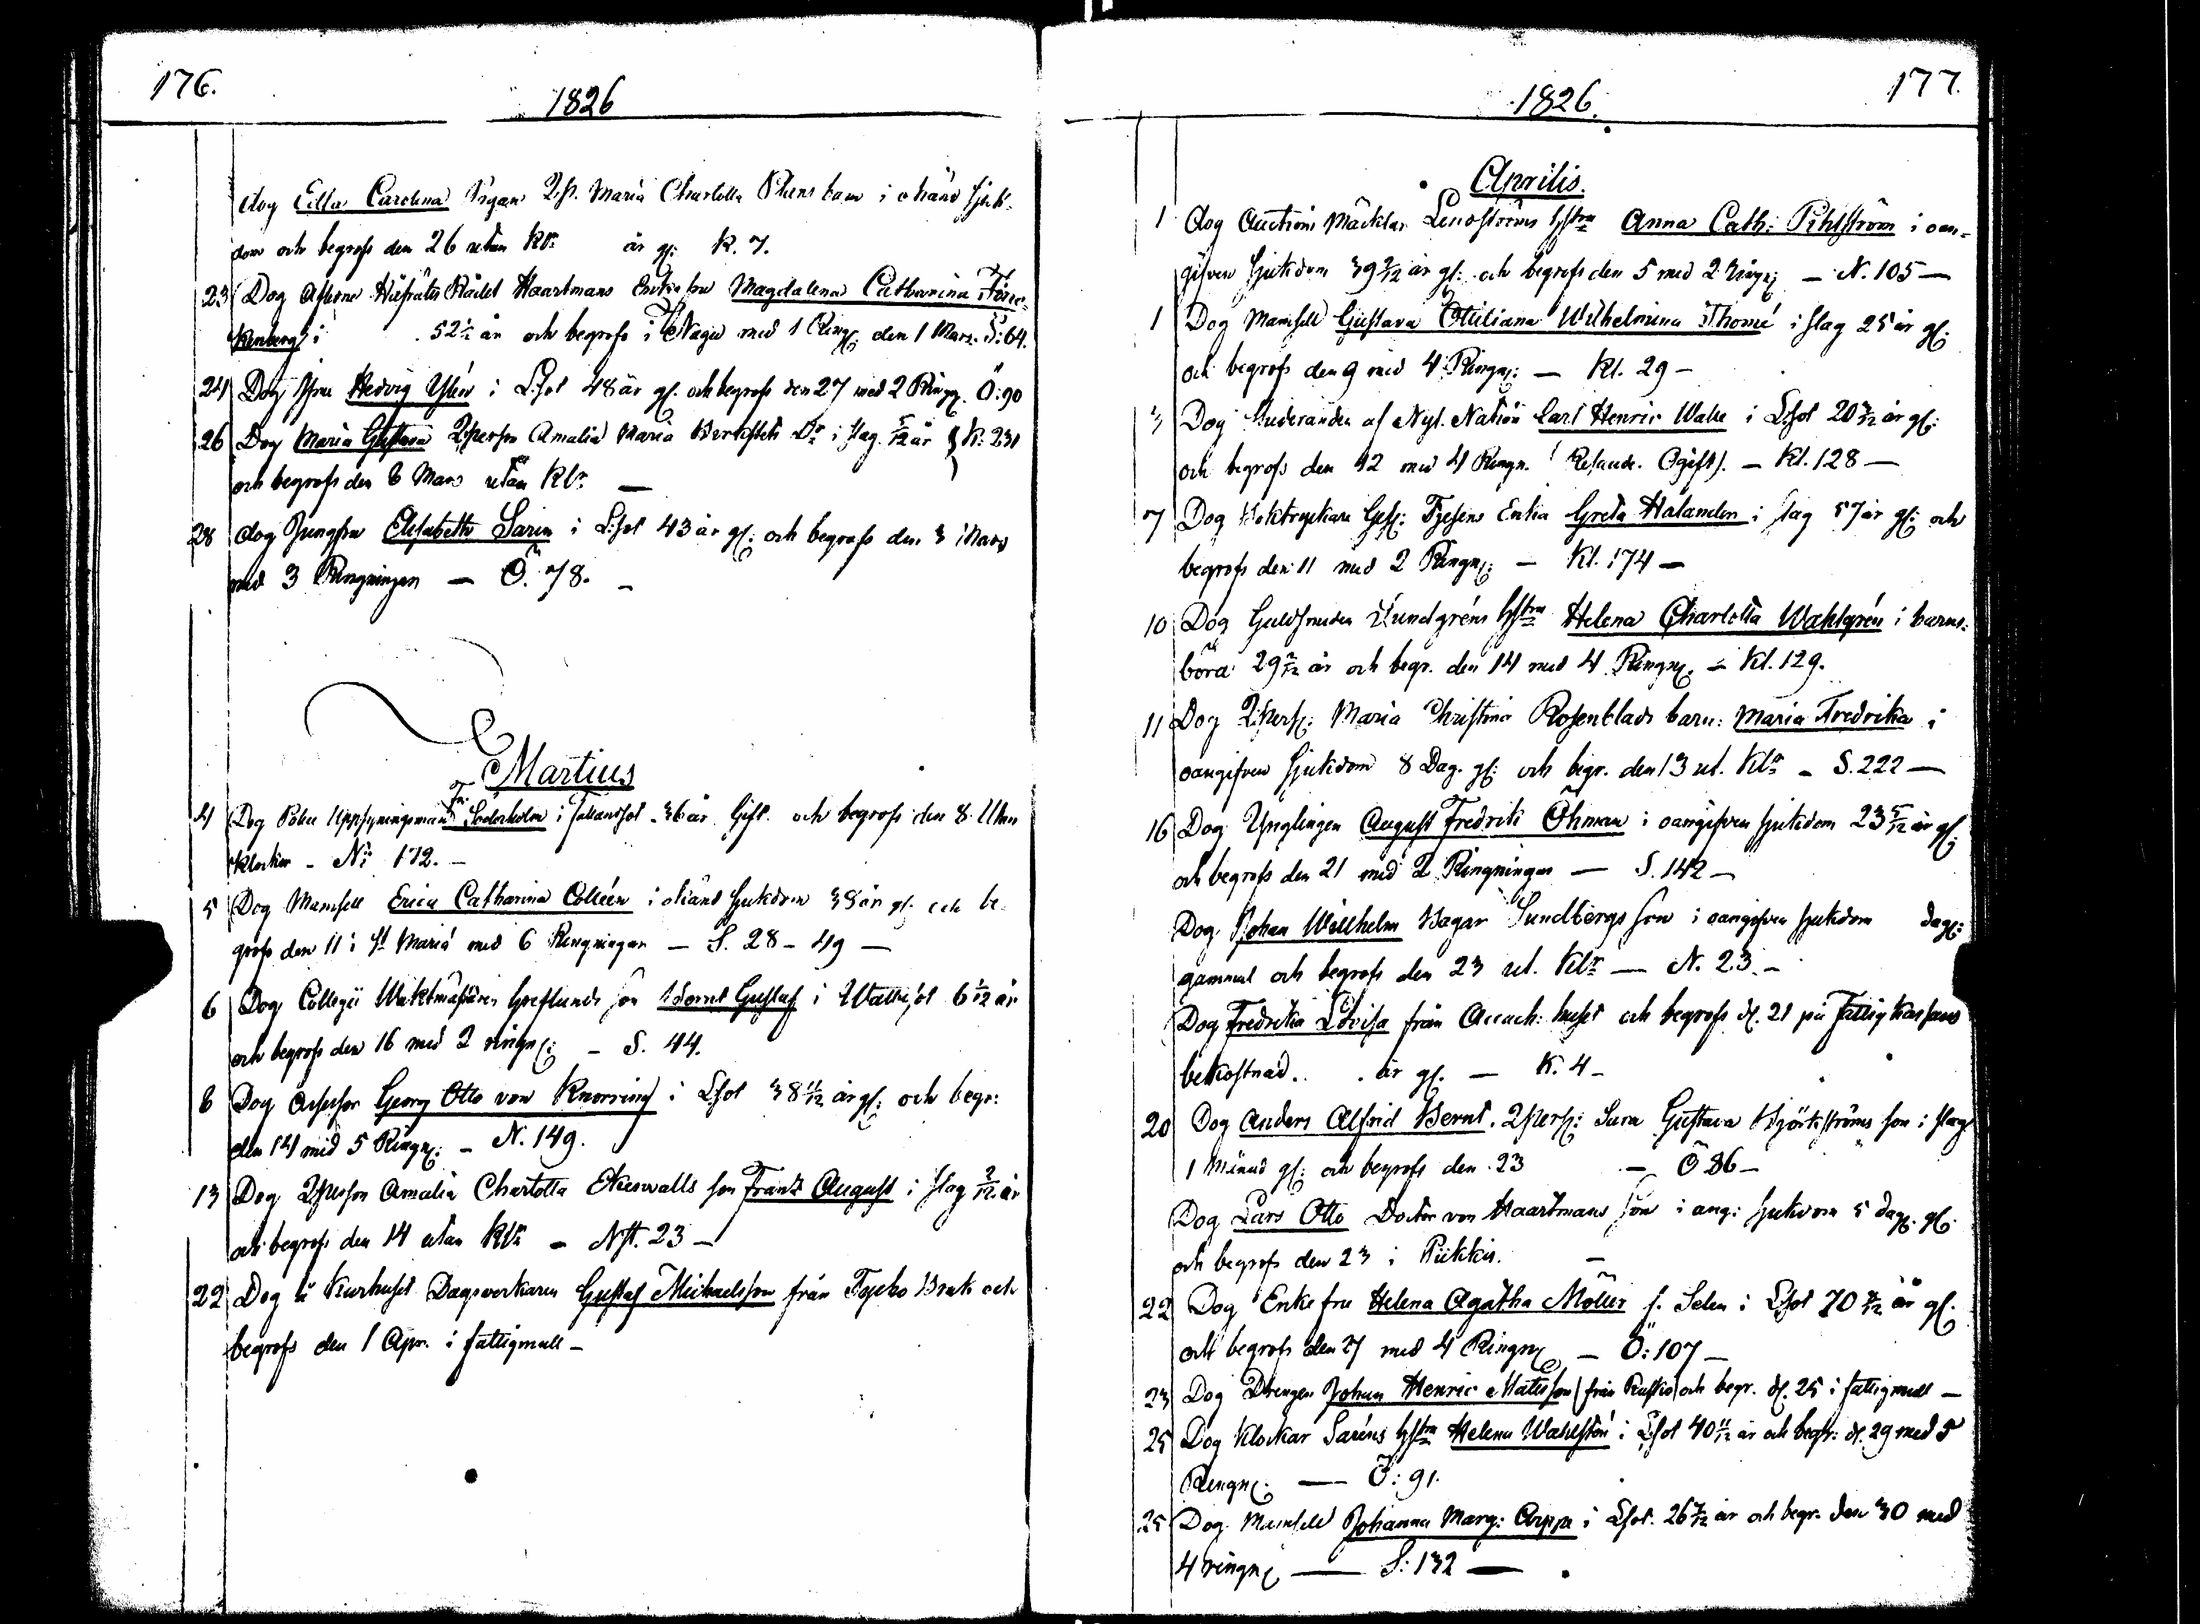 176.
1826
dog Ulla Carolina Pigan Qsp. Maria Charlotta barn i okänd sjuk-
dom och begrofs den 26 utan Klr år gl: K. 7.
23 Dog Hofrätts Rådet Haartmans Enkefru Magdalena Catharina
kenberg i 52½ år och begrofs i Nagu med 1 Ringn: den 1 Mars. S: 64.
24 Dog Hedvig i Lsot 48 år gl. och begrofs den 27 med 2 Ringn. Ö: 90
26 Dog Maria Gustava Qpersон Amalia Maria Dr i slag 5/12 år K: 231
och begrofs den 6 Mars utan Klr —
28 dog Jungfru Elisabeth Sarin i Lsot 43 år gl: och begrofs den 3 Mars
med 3 Ringningar — Ö. 78. —
Martius
4 Dog Police Uppsyningsman Söderholm i fallandsot 36 år Gift och begrofs den 8 Utan
klockor - No 172. —
5 Dog Mamsell Erica Catharina Colleén i okänd sjukdom 38 år gl. och be-
grofs den 11 i St Mariæ med 6 Ringningar — S. 28 - 49 —
6 Dog Collegii Waktmästaren Greflunds son Bernt Gustaf i Wattusot 6 1/12 år
och begrofs den 16 med 2 ringn: — S. 44.
8 Dog Assessor Georg Otto von Knorring i Lsot 38 11/12 år gl: och begr:
den 14 med 5 Ringn: — N. 149.
13 Dog Qperson Amalia Charlotta Ekewalls son Frans August i slag 2/12 år
och begrofs den 14 utan Klr — Nst. 23 —
22 Dog å Kurhuset Dagsverkaren Gustaf Michaelsson från Tycko Bruk och
begrofs den 1 Apr. i fattigmull —
177.
1826.
Aprilis.
1 dog Auctions Mäcklar Lindströms hstru Anna Cath: Pihlström i oan-
gifven sjukdom 39 2/12 år gl: och begrofs den 5 med 2 Ringn: — N. 105 —
1 Dog Mamsell Gustava Otiliana Wilhelmina Thomé i slag 25 år gl:
och begrofs den 9 med 4 Ringn: — Kl. 29 —
3 Dog Studeranden af Nyl. Nation Carl Henric i Lsot 20 år gl:
och begrofs den 12 med 4 Ringn. Resande. Ogift. — Kl. 128 —
7 Dog Boktryckare Gesl: Enka Greta Halander i slag 57 år gl: och
begrofs den 11 med 2 Ringn: — Kl. 174 —
10 Dog Guldsmeden Lundgréns hstru Helena Charlotta Wahlgrén i barns-
börd 29 2/12 år och begr. den 14 med 4 Ringn. — Kl. 129.
11 Dog Qpers: Maria Christina Rosenblads barn: Maria Fredrika i
oangifven sjukdom 8 Dag. gl: och begr. den 13 ut. Klr — S. 222 —
16 Dog Ynglingen August Fredrik Öhman i oangifven sjukdom 23 5/12 år gl:
och begrofs den 21 med 2 Ringningar — S. 142 —
Dog Johan Willhelm Bagar Sundbergs son i oangifven sjukdom dag:
gammal och begrofs den 23 ut. Klr — N. 23. —
Dog Fredrika Lovisa från Accouch: huset och begrofs d. 21 på Fattig Kassans
bekostnad. . . år gl. — K. 4 —
20 Dog Anders Alfrid Bernt. Qpers: Sara Gustava Björkströms son i slag
1 Månad gl: och begrofs den 23 — Ö 36 —
Dog Lars Otto Doctor von Haartmans son i ang: sjukdom 5 dag: gl:
och begrofs den 23 i Pikkis. —
22 Dog Enkefru Helena Agatha Möller f. Selin i Lsot 70 år gl.
och begrofs den 27 med 4 Ringn: — Ö: 107 —
23 Dog Drengen Johan Henric Matsson (från Rusko) och begr. d. 25 i fattigmull —
25 Dog Klockar Saréns hstru Helena Wahlstén i Lsot 40 11/12 år och begr: d. 29 med 5
Ringn: — Ö: 91.
25 Dog Mamsell Johanna Marg: Arppe i Lsot. 26 år och begr. den 30 med
4 ringn: — S: 132 —